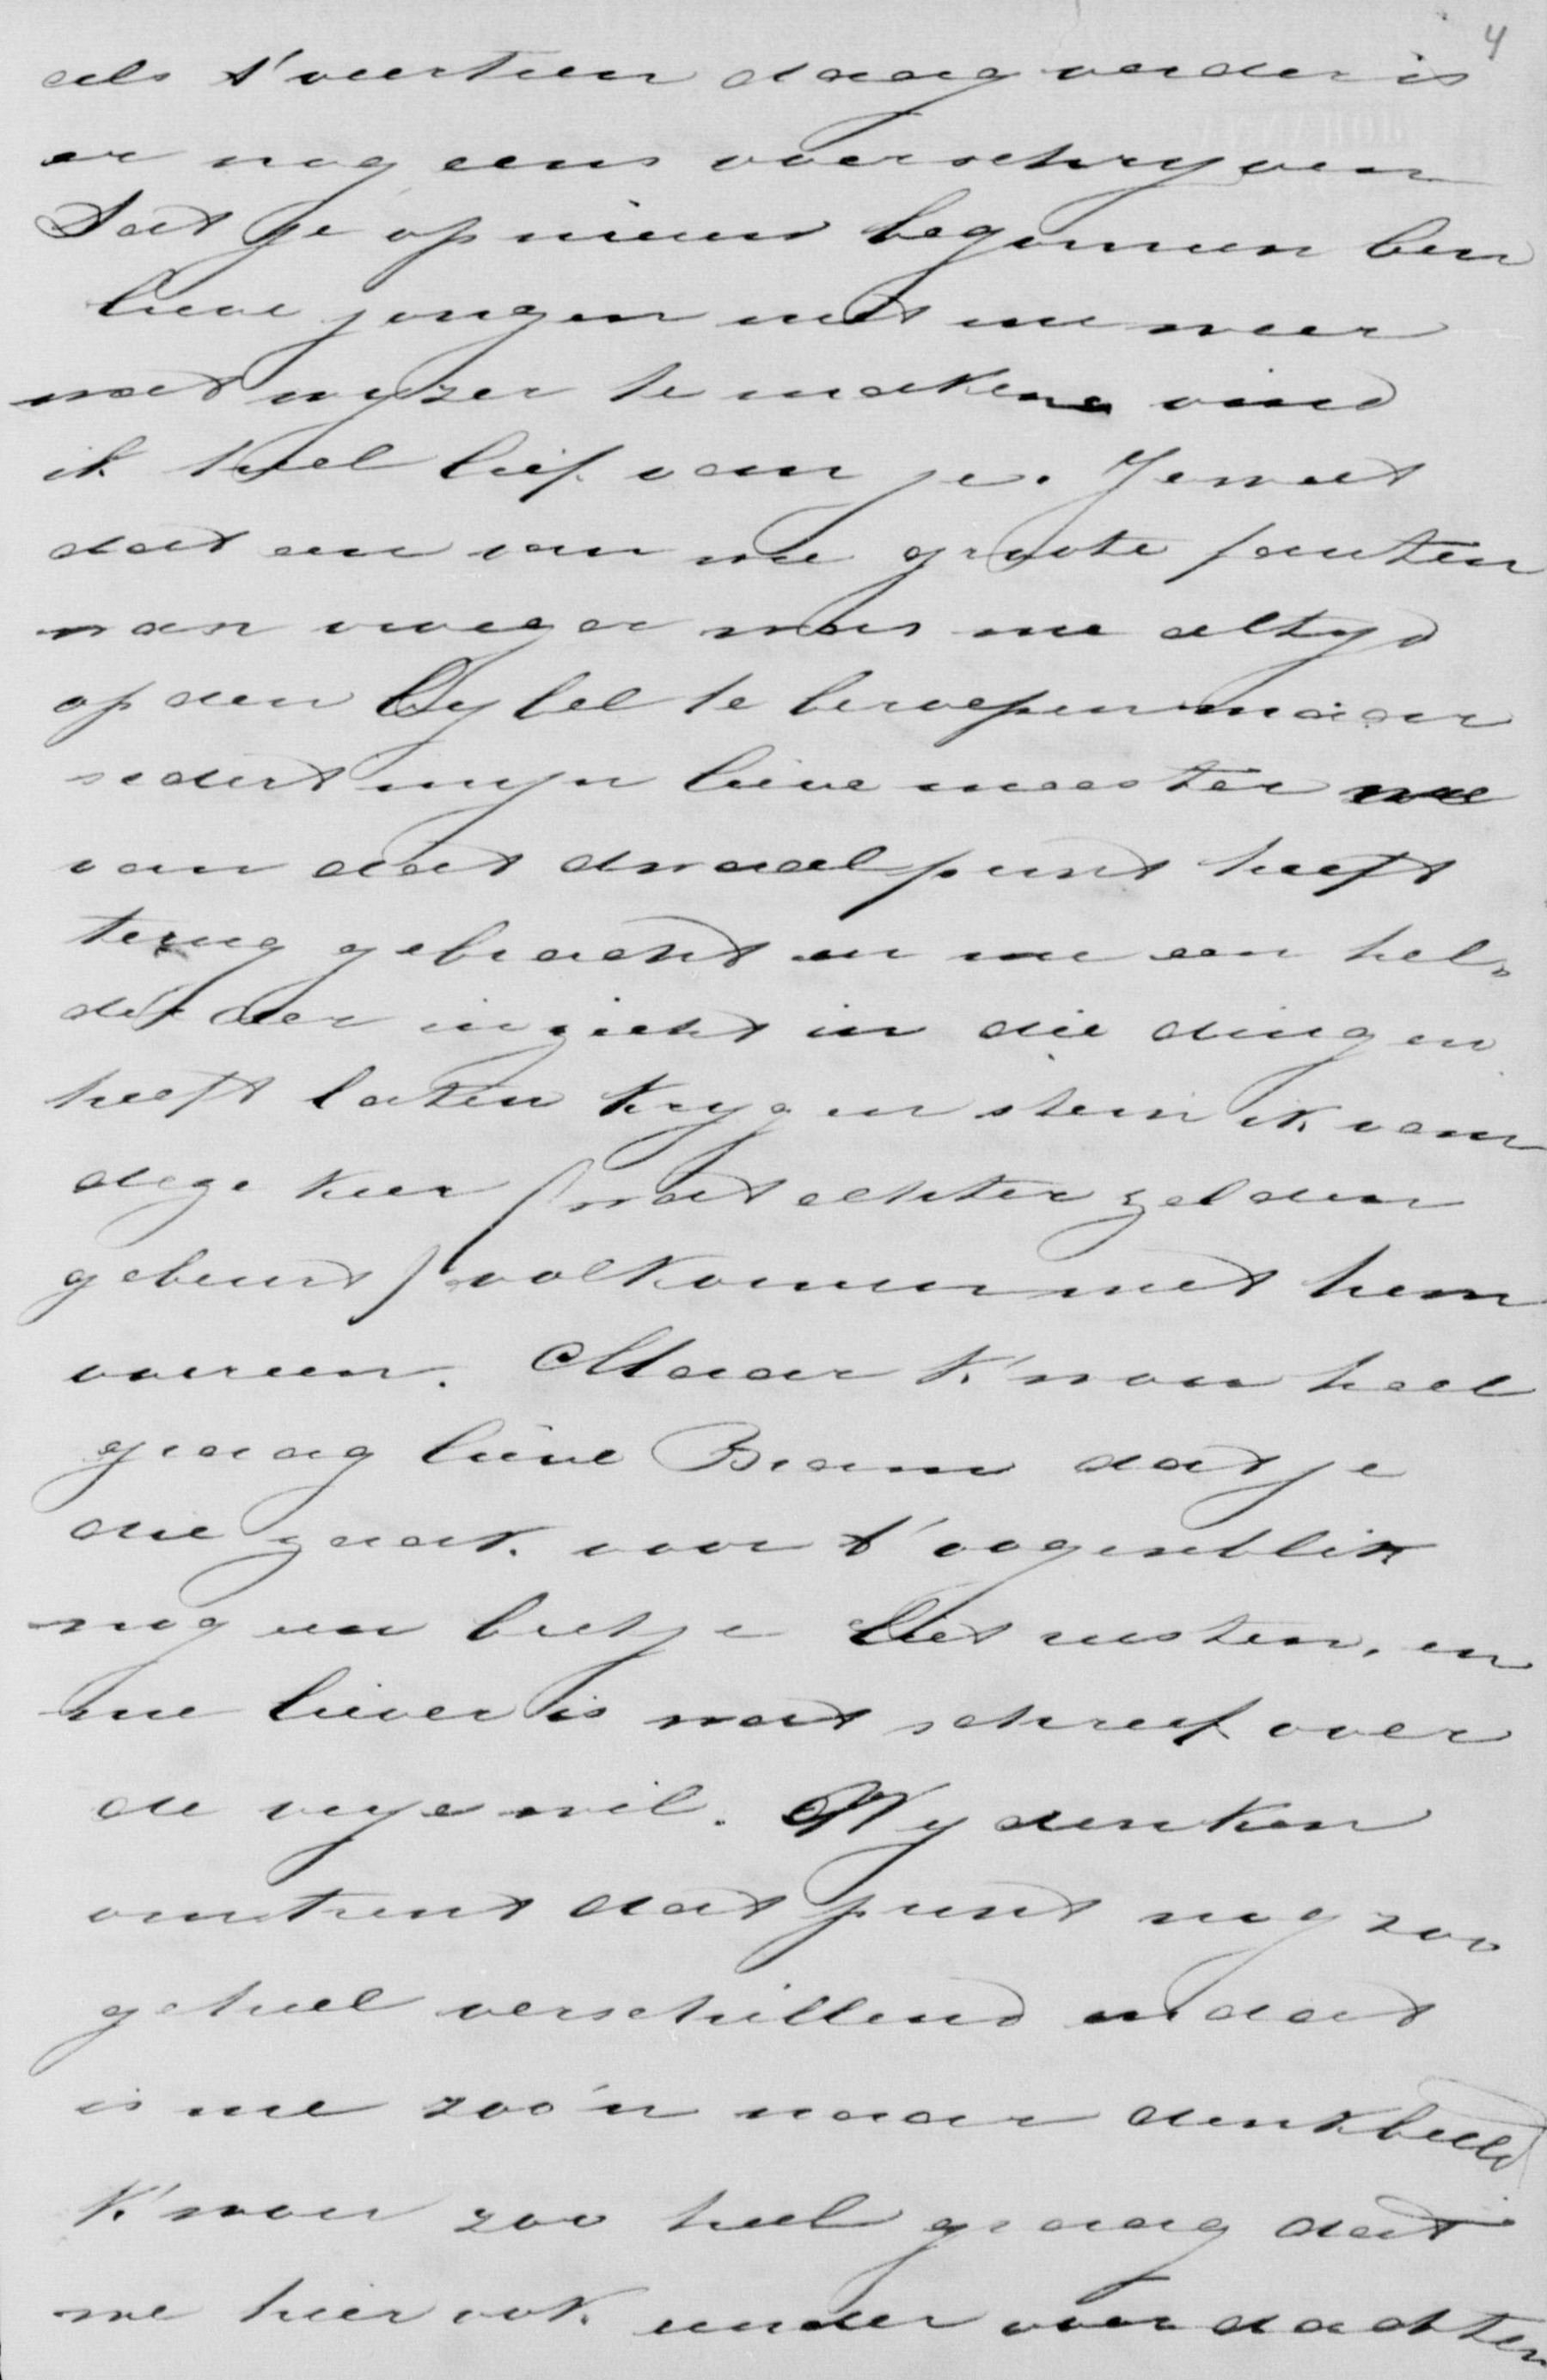 4
als t' veertien daag verder is
er nog eens over schryven
Dat je op nieuw begonnen ben
lieve jongen met me weer
wat wyzer te maken vind
ik heel lief van je. Je weet
dat een van me groote fouten
van vroeger was me altyd
op den Bybel te beroepen maar
sedert myn lieve meester me
van dat dwaalpunt heeft
terug gebracht en me een hel-
der der inzicht in die dingen
heeft laten krygen stem ik van
deze keer (wat echter zelden
gebeurt) volkomen met hem
overeen. Maar k' wou heel
graag lieve Bram dat je
die zaak voor t' oogenblik
nog een beetje liet rusten, en
me liever is wat schreef over
de vrye wil. Wy denken
omtrent dat punt nog zoo
geheel verschillend en dat
is me zoo'n naar denkbeeld
K' wou zoo heel graag dat
we hier ook eender over dachten